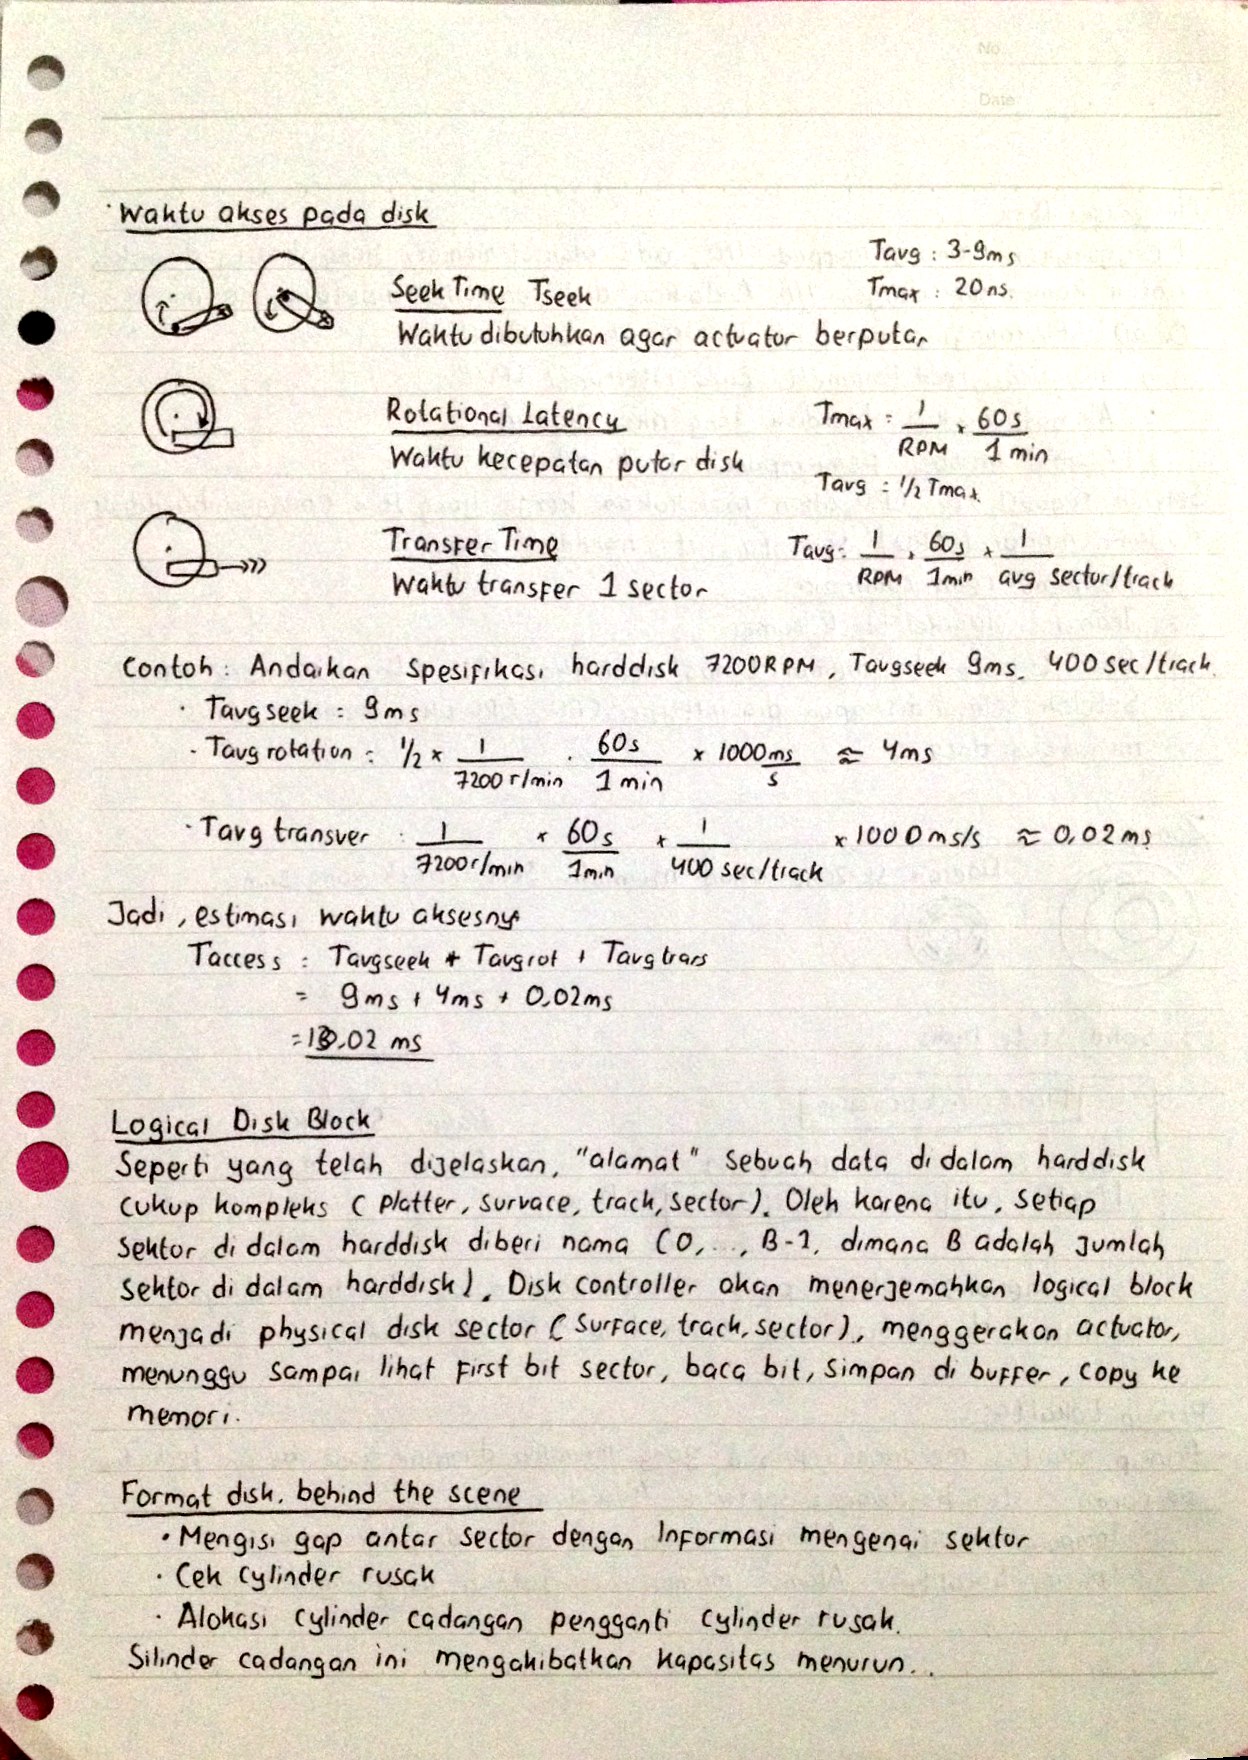 No.
Date
· Waktu akses pada disk
Tavg : 3-9ms
Seek Time Tseek
Tmax : 20ns.
Waktu dibutuhkan agar actuator berputar
Rotational Latency
Tmax = 1/RPM × 60s/1 min
Waktu kecepatan putar disk
Tavg = 1/2 Tmax
Transfer Time
Tavg = 1/RPM × 60s/1min × 1/avg sector/track
Waktu transfer 1 sector
Contoh : Andaikan spesifikasi harddisk 7200RPM, Tavgseek 9ms. 400 sec/track.
· Tavgseek = 9ms
· Tavg rotation = 1/2 × 1/7200 r/min · 60s/1 min × 1000 ms/s ≈ 4ms
· Tavg transver = 1/7200 r/min × 60s/1min × 1/400 sec/track × 1000 ms/s ≈ 0,02 ms
Jadi, estimasi waktu aksesnya
Taccess = Tavgseek + Tavgrot + Tavgtrans
= 9ms + 4ms + 0,02ms
= 13.02 ms
Logical Disk Block
Seperti yang telah dijelaskan, "alamat" sebuah data di dalam harddisk
cukup kompleks ( platter, survace, track, sector). Oleh karena itu, setiap
sektor di dalam harddisk diberi nama (0,..., B-1, dimana B adalah jumlah
sektor di dalam harddisk). Disk controller akan menerjemahkan logical block
menjadi physical disk sector (surface, track, sector), menggerakan actuator,
menunggu sampai lihat first bit sector, baca bit, simpan di buffer, copy ke
memori.
Format disk. behind the scene
· Mengisi gap antar sector dengan informasi mengenai sektor
· Cek cylinder rusak
· Alokasi cylinder cadangan pengganti cylinder rusak.
Silinder cadangan ini mengakibatkan kapasitas menurun..